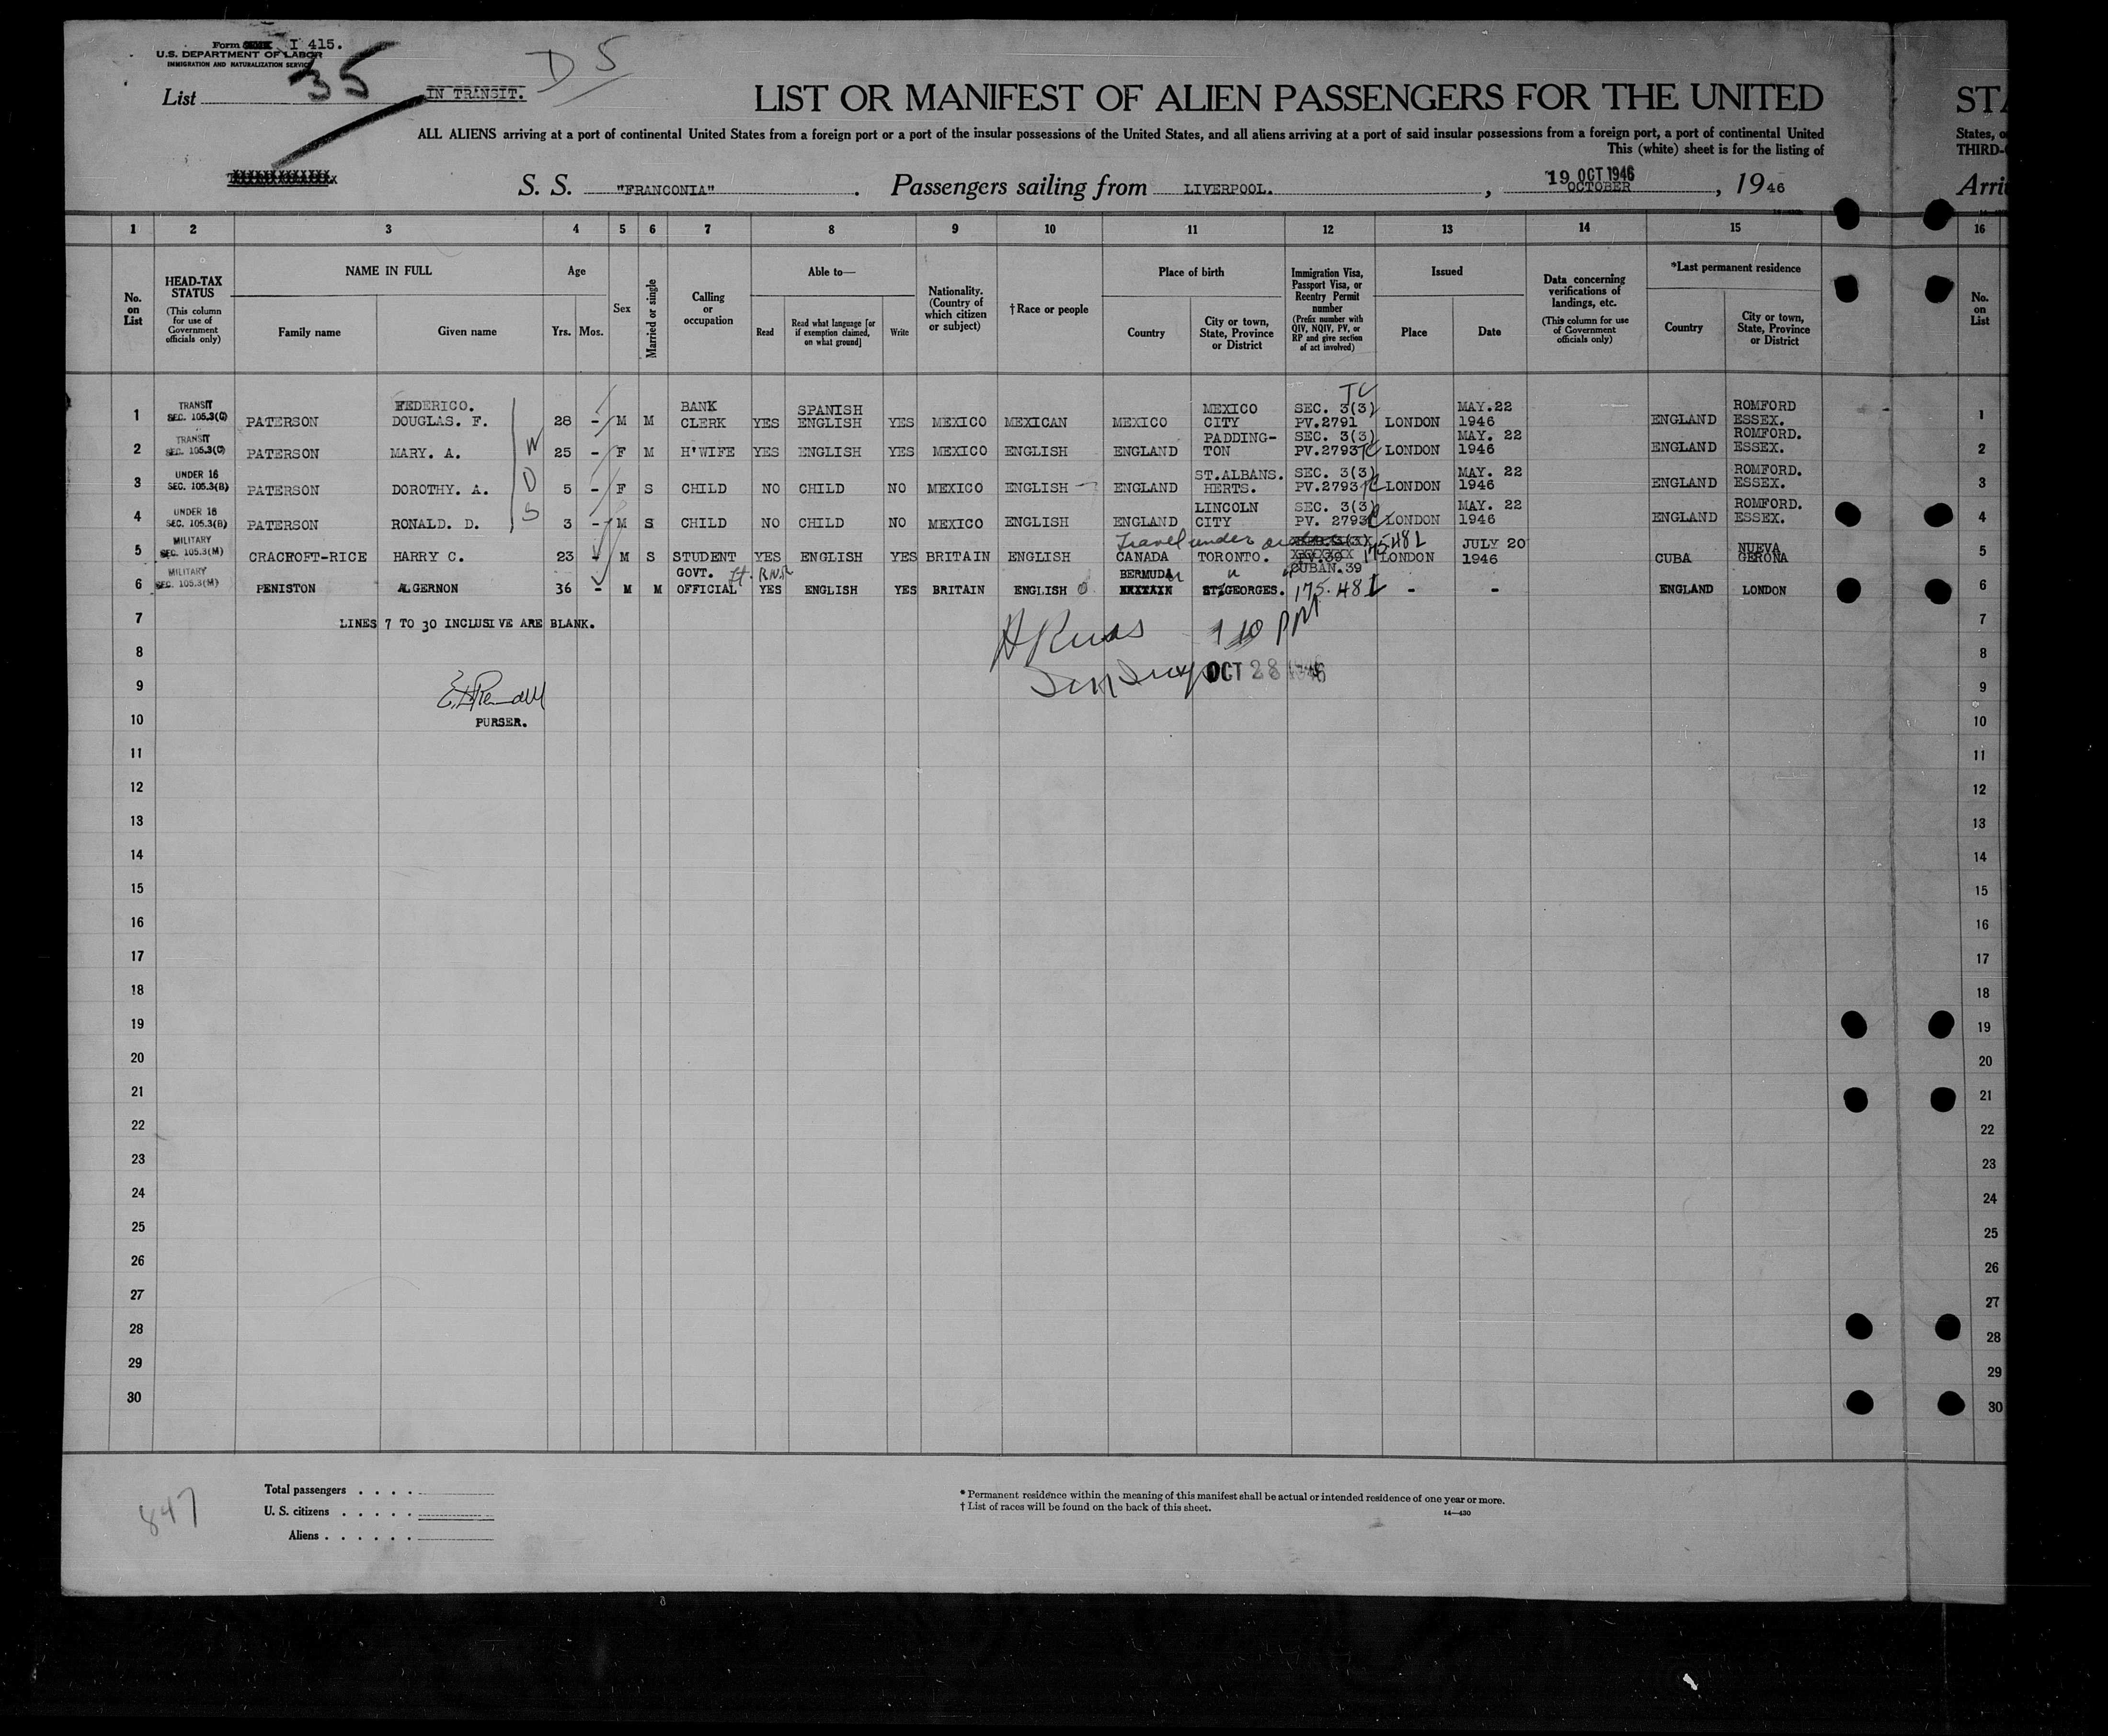 Form I 415.
U.S. DEPARTMENT OF LABOR
IMMIGRATION AND NATURALIZATION SERVICE
List 35 IN TRANSIT. D S
LIST OR MANIFEST OF ALIEN PASSENGERS FOR THE UNITED
ALL ALIENS arriving at a port of continental United States from a foreign port or a port of the insular possessions of the United States, and all aliens arriving at a port of said insular possessions from a foreign port, a port of continental United
This (white) sheet is for the listing of
S. S. "FRANCONIA". Passengers sailing from LIVERPOOL., 19 OCT 1946 OCTOBER, 1946
STA
States, o
THIRD-
Arri
1 2 3 4 5 6 7 8 9 10 11 12 13 14 15 16
No. on List
HEAD-TAX STATUS (This column for use of Government officials only)
NAME IN FULL
Family name
Given name
Age
Yrs. Mos.
Sex
Married or single
Calling or occupation
Able to—
Read
Read what language [or if exemption claimed, on what ground]
Write
Nationality. (Country of which citizen or subject)
†Race or people
Place of birth
Country
City or town, State, Province or District
Immigration Visa, Passport Visa, or Reentry Permit number (Prefix number with QIV, NQIV, PV, or RP and give section of act involved)
Issued
Place
Date
Data concerning verifications of landings, etc. (This column for use of Government officials only)
*Last permanent residence
Country
City or town, State, Province or District
No. on List
1 TRANSIT SEC. 105.3(C) PATERSON FEDERICO. DOUGLAS. F. 28 - M M BANK CLERK YES SPANISH ENGLISH YES MEXICO MEXICAN MEXICO MEXICO CITY SEC. 3(3) PV.2791 LONDON MAY.22 1946 ENGLAND ROMFORD ESSEX. 1
2 TRANSIT SEC. 105.3(C) PATERSON MARY. A. 25 - F M H'WIFE YES ENGLISH YES MEXICO ENGLISH ENGLAND PADDING-TON SEC. 3(3) PV.2793 LONDON MAY. 22 1946 ENGLAND ROMFORD. ESSEX. 2
3 UNDER 16 SEC. 105.3(B) PATERSON DOROTHY. A. 5 - F S CHILD NO CHILD NO MEXICO ENGLISH ENGLAND ST.ALBANS. HERTS. SEC. 3(3) PV.2793 LONDON MAY. 22 1946 ENGLAND ROMFORD. ESSEX. 3
4 UNDER 16 SEC. 105.3(B) PATERSON RONALD. D. 3 - M S CHILD NO CHILD NO MEXICO ENGLISH ENGLAND LINCOLN CITY SEC. 3(3) PV. 2793 LONDON MAY. 22 1946 ENGLAND ROMFORD. ESSEX. 4
W D S
5 MILITARY SEC. 105.3(M) CRACROFT-RICE HARRY C. 23 - M S STUDENT YES ENGLISH YES BRITAIN ENGLISH CANADA TORONTO. Travel under 175.481 CUBAN.39 LONDON JULY 20 1946 CUBA NUEVA GERONA 5
6 MILITARY SEC. 105.3(M) PENISTON ALGERNON 36 - M M GOVT. OFFICIAL Lt. R.N.R YES ENGLISH YES BRITAIN ENGLISH BERMUDA ST.GEORGES. 175.481 - - ENGLAND LONDON 6
7 LINES 7 TO 30 INCLUSIVE ARE BLANK. 7
8 OCT 28 1946 8
9 9
10 PURSER. 10
11 11
12 12
13 13
14 14
15 15
16 16
17 17
18 18
19 19
20 20
21 21
22 22
23 23
24 24
25 25
26 26
27 27
28 28
29 29
30 30
847
Total passengers . . . .
U. S. citizens . . . . .
Aliens . . . . . .
* Permanent residence within the meaning of this manifest shall be actual or intended residence of one year or more.
† List of races will be found on the back of this sheet.
14—430